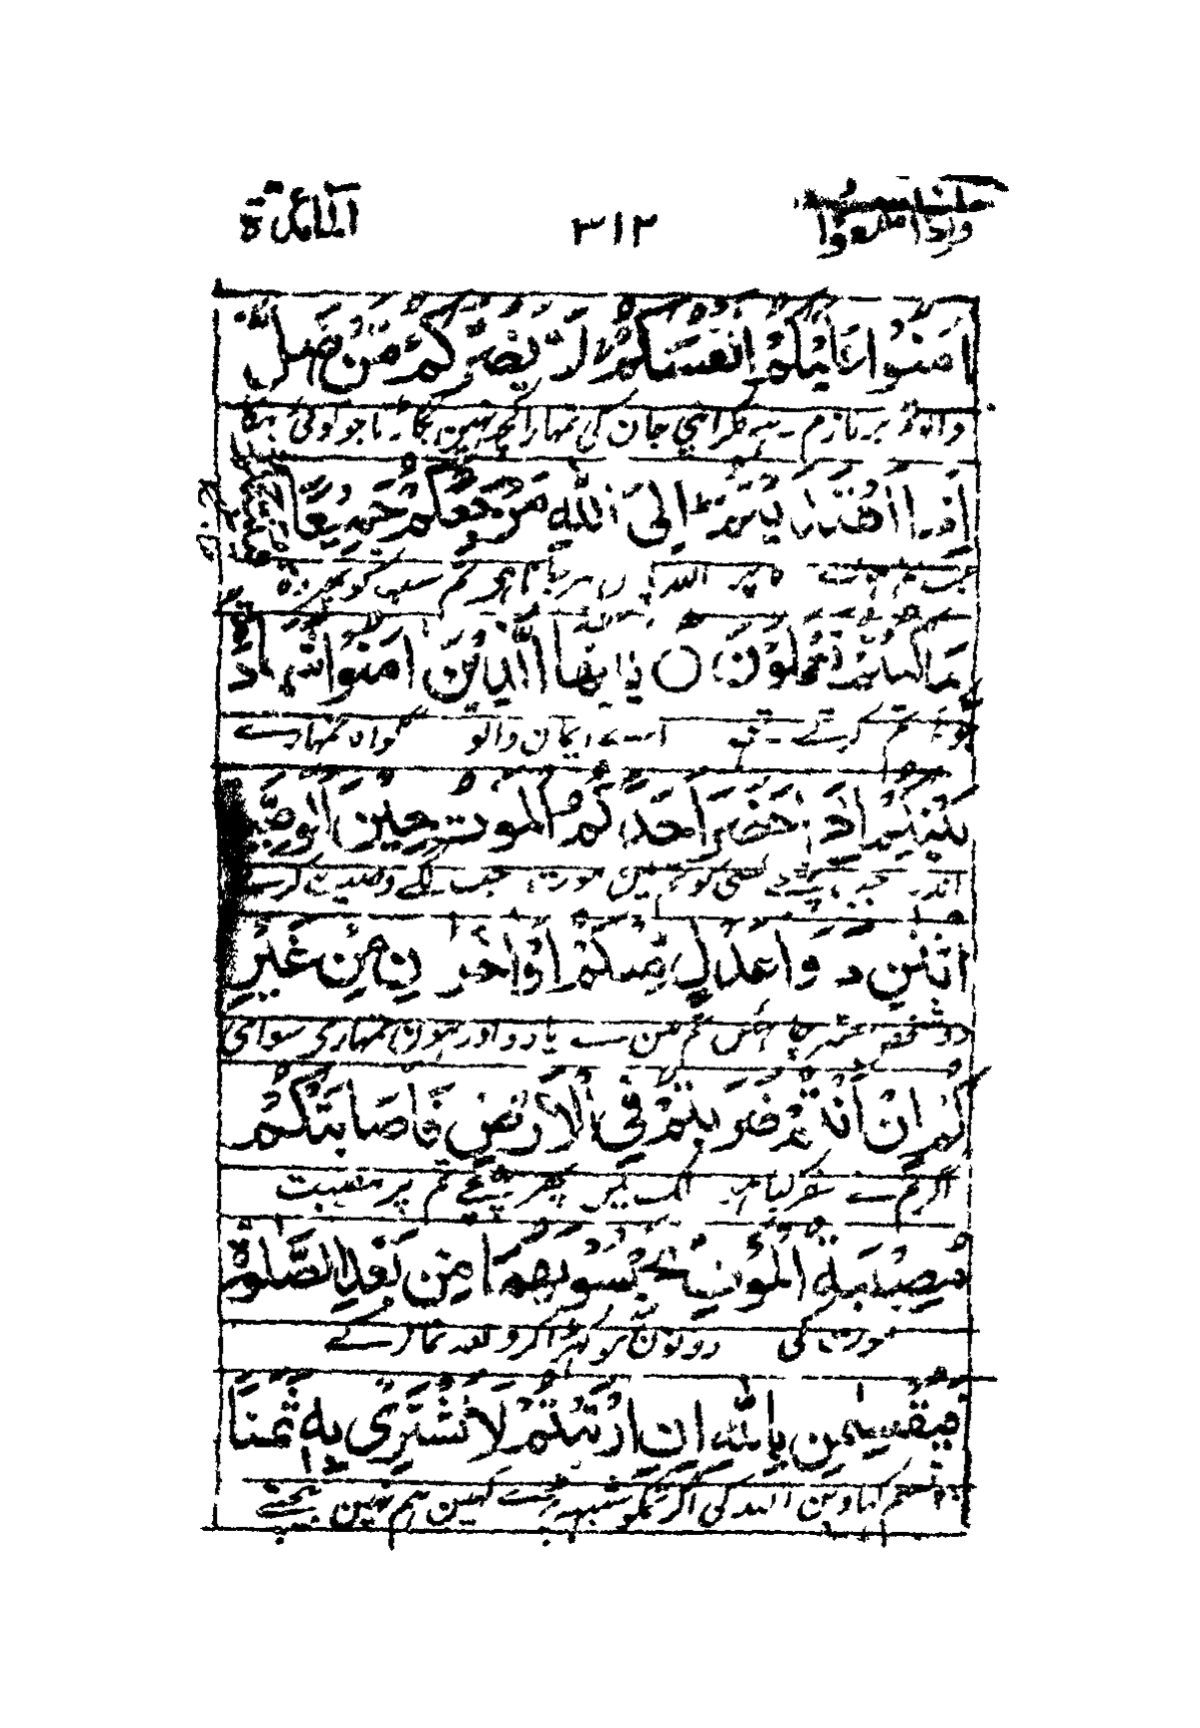 واذا سمعوا ٣١٢ المائدة
اٰمَنُوْا عَلَيْكُمْ اَنْفُسَكُمْ لَا يَضُرُّكُمْ مَّنْ ضَلَّ
لازم ہے فکر اپنی جان کی تمہارا کچھ نہیں بگاڑتا جو کوئی بہکا
اِذَا اهْتَدَيْتُمْ ؕ اِلَى اللّٰهِ مَرْجِعُكُمْ جَمِيْعًا
جب اللہ پاس پھر جانا ہی تم سب کو پھر وہ
بِمَا كُنْتُمْ تَعْمَلُوْنَ ○ يٰۤاَيُّهَا الَّذِيْنَ اٰمَنُوْا شَهَادَةُ
جو تم کرتے تھے اے ایمان والو گواہ تمہارے
بَيْنِكُمْ اِذَا حَضَرَ اَحَدَكُمُ الْمَوْتُ حِيْنَ الْوَصِيَّةِ
اندر جب پہنچے کسی کو تمہیں موت جب لگے وصیت کرنے
اثْنٰنِ ذَوَا عَدْلٍ مِّنْكُمْ اَوْ اٰخَرٰنِ مِنْ غَيْرِ
دو شخص معتبر چاہئیں تم میں سے یا دو اور ہوں تمہاری سوای
كُمْ اِنْ اَنْتُمْ ضَرَبْتُمْ فِى الْاَرْضِ فَاَصَابَتْكُمْ
اگر تم نے سفر کیا ہو ملک میں پھر پہنچے تم پر مصیبت
مُّصِيْبَةُ الْمَوْتِ ؕ تَحْبِسُوْنَهُمَا مِنْ بَعْدِ الصَّلٰوةِ
موت کی دونوں کو کھڑا کرو بعد نماز کے
فَيُقْسِمٰنِ بِاللّٰهِ اِنِ ارْتَبْتُمْ لَا نَشْتَرِىْ بِهٖ ثَمَنًا
وہ قسم کھاویں اللہ کی اگر تمکو شبہہ پڑے کہیں ہم نہیں بیچتے